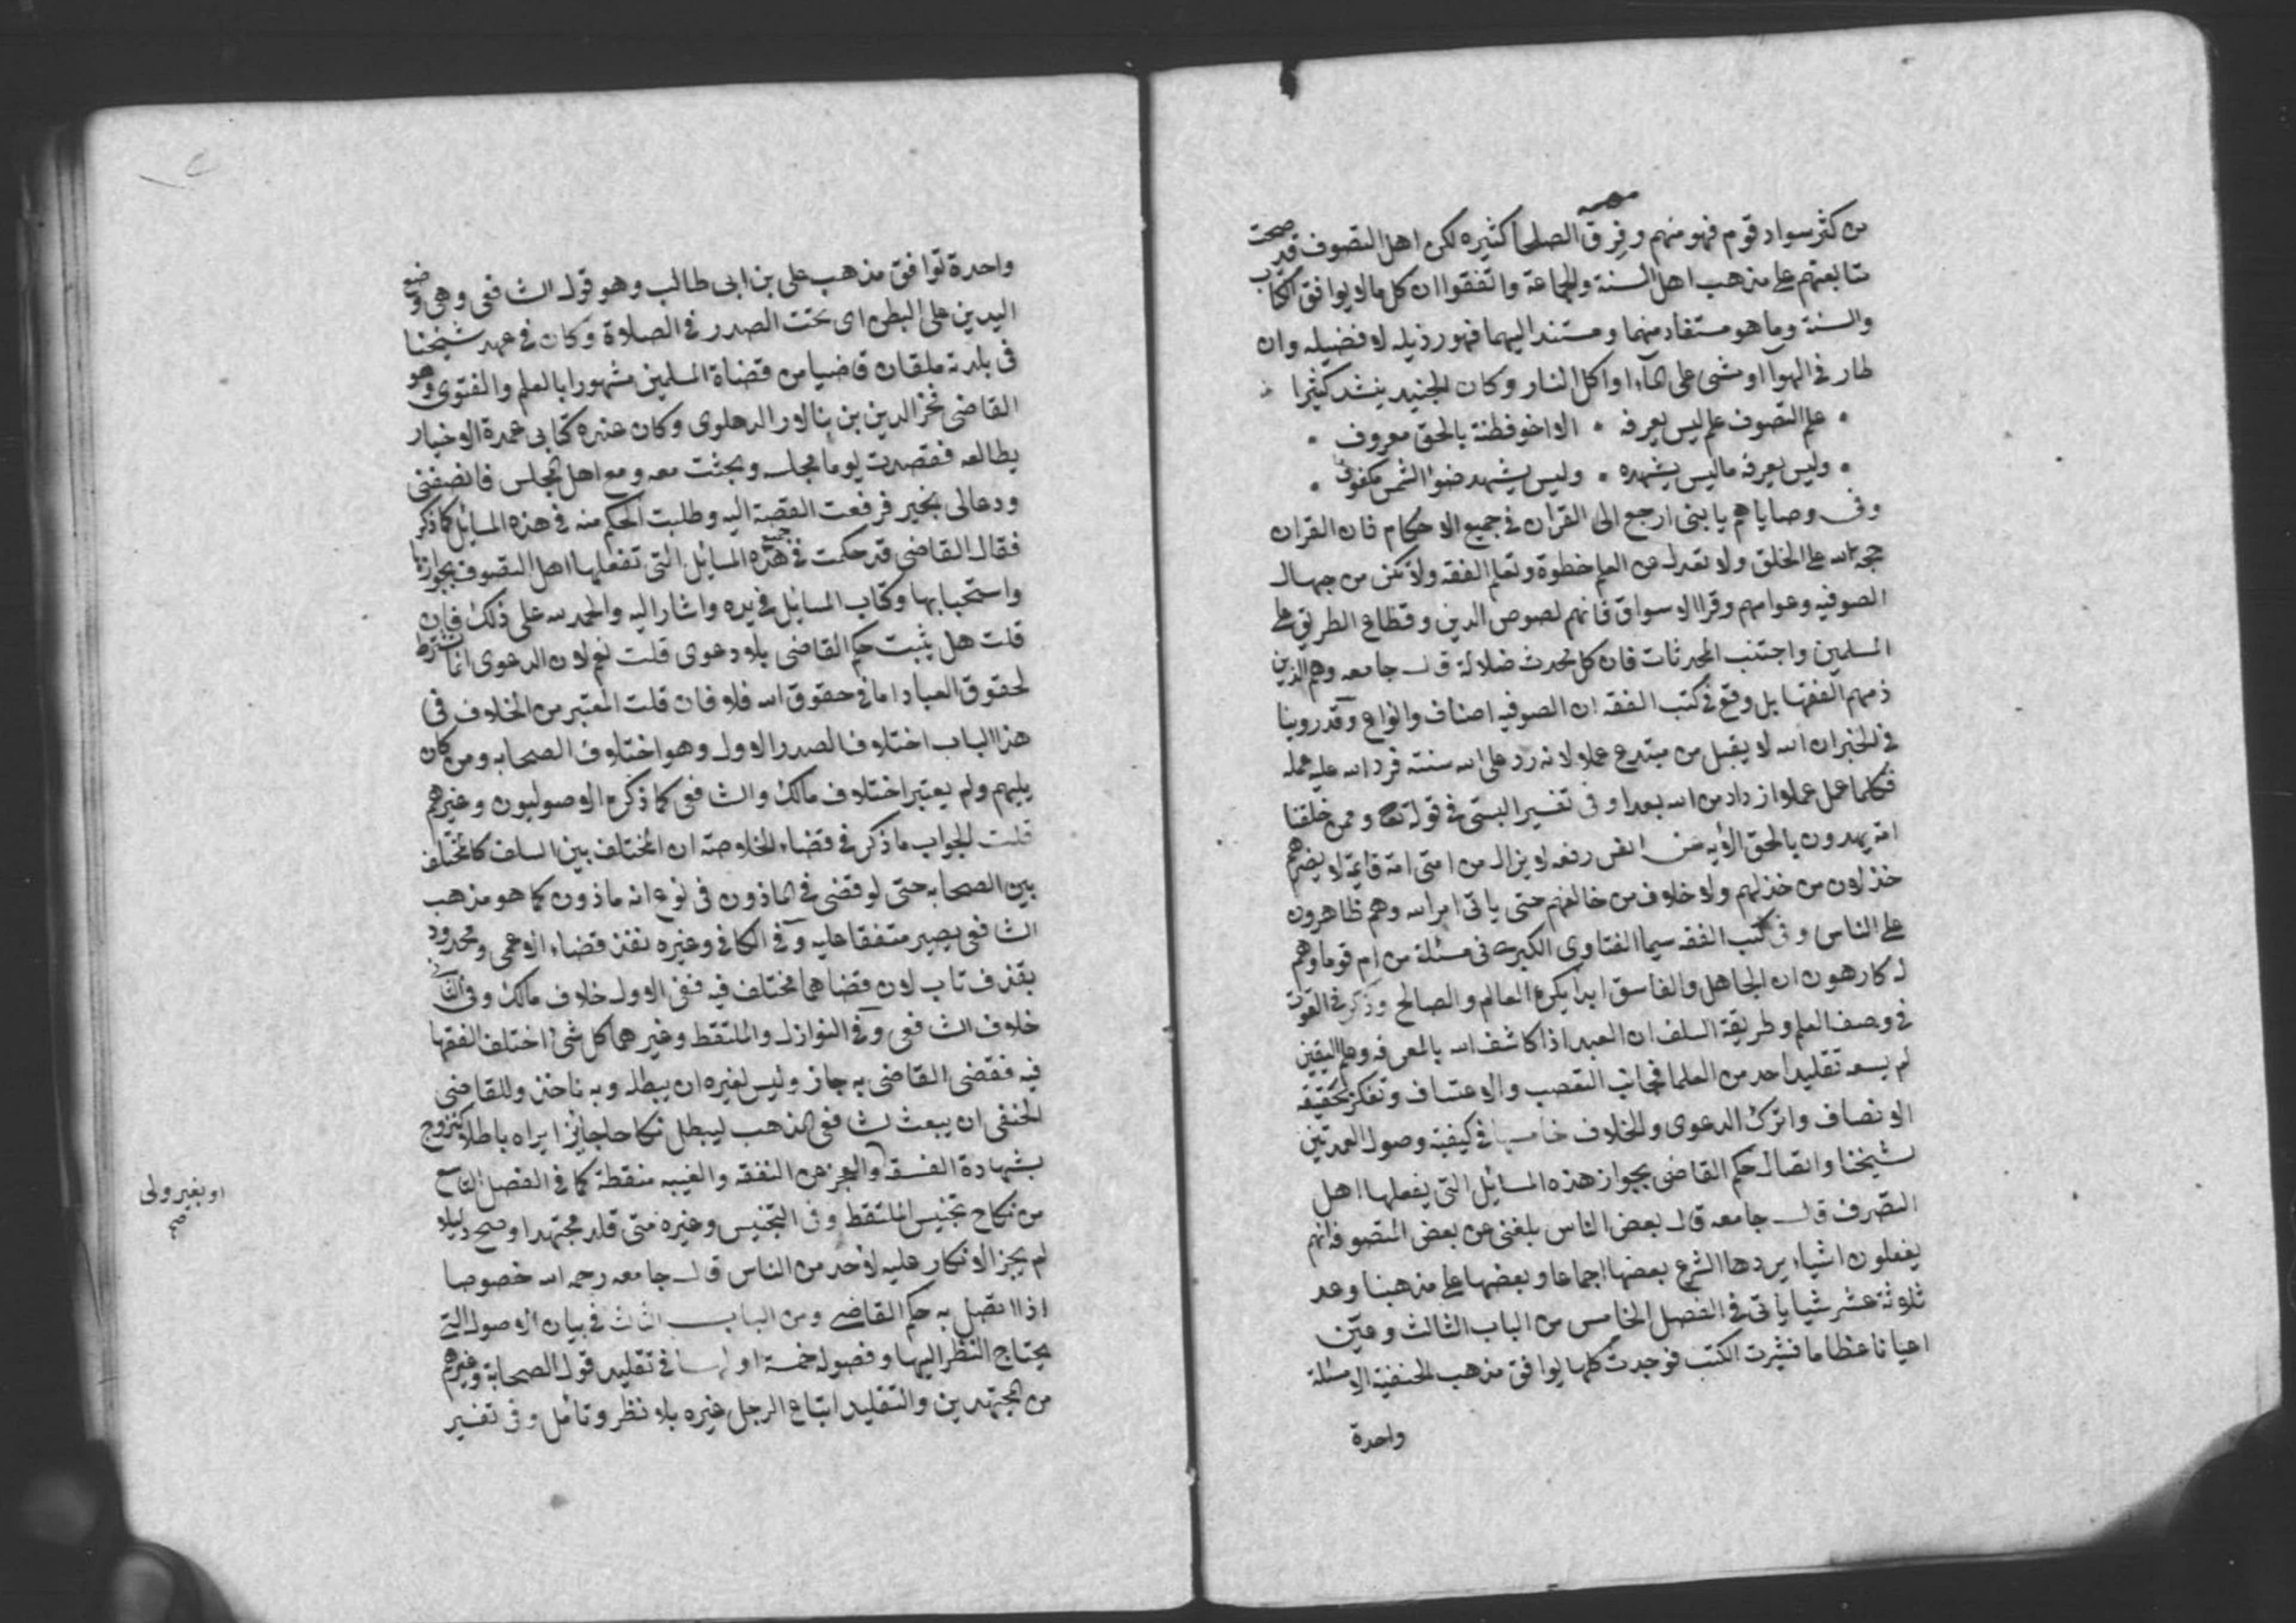 من كثر سواد قوم فهو منهم وفرق الصلحا كثيره لكن اهل التصوف قد صحت
متابعتهم على مذهب اهل السنة والجماعة واتفقوا ان كل ما لا يوافق الكتاب
والسنة وما هو مستفاد منهما ومستند اليهما فهو رذيله لا فضيله وان
طار في الهوآ او مشى على المآء او اكل النار وكان الجنيد ينشد كثيرا
علم التصوف علم ليس يعرفه • الا اخو فطنة بالحق معروف •
• وليس يعرفه ما ليس يشهده • وليس يشهد ضوا الشمس مكفوف •
وفي وصاياهم يا بني ارجع الى القران في جميع الاحكام فان القران
حجة الله على الخلق ولا تعدل عن العلم خطوة وتعلم الفقه ولا تكن من جهال
الصوفيه وعوامهم وقرا الاسواق فانهم لصوص الدين وقطاع الطريق على
المسلمين واجتنب المحدثات فان كل محدث ضلالة قال جامعه وهم الذين
ذمهم الفقها بل وقع في كتب الفقه ان الصوفيه اصناف وانواع وقد روينا
في الخبر ان الله لا يقبل من مبتدع عملا لانه رد على الله سنته فرد الله عليه عمله
فكلما عمل عملا ازداد من الله بعدا وفي تفسير البستى في قوله تعا وممن خلقنا
امة يهدون بالحق الايه عن انس رفعه لا يزال من امتى امة قايمة لا يضرهم
خذلان من خذلهم ولا خلاف من خالفهم حتى ياتى امر الله وهم ظاهرون
على الناس وفي كتب الفقه سيما الفتاوى الكبرى في مسئلة من ام قوما وهم
له كارهون ان الجاهل والفاسق ابدا يكره العالم والصالح وذكر في القوت
في وصف العلم وطريقة السلف ان العبد اذا كاشف الله بالمعرفه وعلم اليقين
لم يسعه تقليد احد من العلما فجانب التعصب والاعتساف وتفكر بحقيقة
الانصاف واترك الدعوى والخلاف خامسها في كيفية وصول العمدتين
لشيخنا واتصال حكم القاضى بجواز هذه المسايل التى يفعلها اهل
التصرف قال جامعه قال بعض الناس بلغنى عن بعض المتصوفه انهم
يفعلون اشياء يردها الشرع بعضها اجماعا وبعضها على مذهبنا وعد
ثلاثة عشر شيا ياتى في الفصل الخامس من الباب الثالث وعين
اعيانا عظاما فنشرت الكتب فوجدت كلها يوافق مذهب الحنفية الا مسئلة
واحدة
واحدة توافق مذهب على بن ابى طالب وهو قول الشافعى وهى وضع
اليدين على البطن اى تحت الصدر في الصلاة وكان في عهد شيخنا
في بلدة ملقان قاضيا من قضاة المسلمين مشهورا بالعلم والفتوى وهو
القاضى فخر الدين بن الدهلوى وكان عنده كتابى عمدة الاخيار
يطالعه فقصدت يوما مجلسه وبحثت معه ومع اهل المجلس فانصفنى
ودعا لى بخير فرفعت القصة اليه وطلبت الحكم منه في هذه المسايل كما ذكر
فقال القاضى قد حكمت في جميع هذه المسايل التى تفعلها اهل التصوف بجوازها
واستحبابها وكتاب المسايل في يده واشار اليه والحمد لله على ذلك فان
قلت هل يثبت حكم القاضى بلا دعوى قلت نعم لان الدعوى انما تشترط
لحقوق العباد اما في حقوق الله فلا فان قلت المعتبر من الخلاف في
هذا الباب اختلاف الصدر الاول وهو اختلاف الصحابه ومن كان
يليهم ولم يعتبر اختلاف مالك والشافعى كما ذكره الاصوليون وغيرهم
قلت الجواب ما ذكر في قضاء الخلاصة ان المختلف بين السلف كالمختلف
بين الصحابه حتى لو قضى في الماذون في نوع انه ماذون كما هو مذهب
الشافعى يصير متفقا عليه وفى الكافي وغيره نفذ قضاء الاعمى ومحدود
بقذف تاب لان قضاهما مختلف فيه ففى الاول خلاف مالك وفى الثانى
خلاف الشافعى وفى النوازل والملتقط وغيرهما كل شئ اختلف الفقها
فيه فقضى القاضى به جاز وليس لغيره ان يبطله وبه ناخذ وللقاضى
الحنفى ان يبعث لشافعى المذهب ليبطل نكاحا جايزا يراه باطلا كتزوج
بشهادة الفسقه والعجز عن النفقه والغيبه منقطة كما في الفصل التاسع
من نكاح تجنيس الملتقط وفى التجنيس وغيره متى قلد مجتهدا وصح دليله
لم يجز الانكار عليه لاحد من الناس قال جامعه رحمه الله خصوصا
اذا اتصل به حكم القاضى ومن الباب الثالث في بيان الاصول التى
يحتاج النظر اليها وفصوله خمسة اولها في تقليد قول الصحابة وغيرهم
من المجتهدين والتقليد اتباع الرجل غيره بلا نظر وتامل وفى تفسير
او بغير ولى
صح